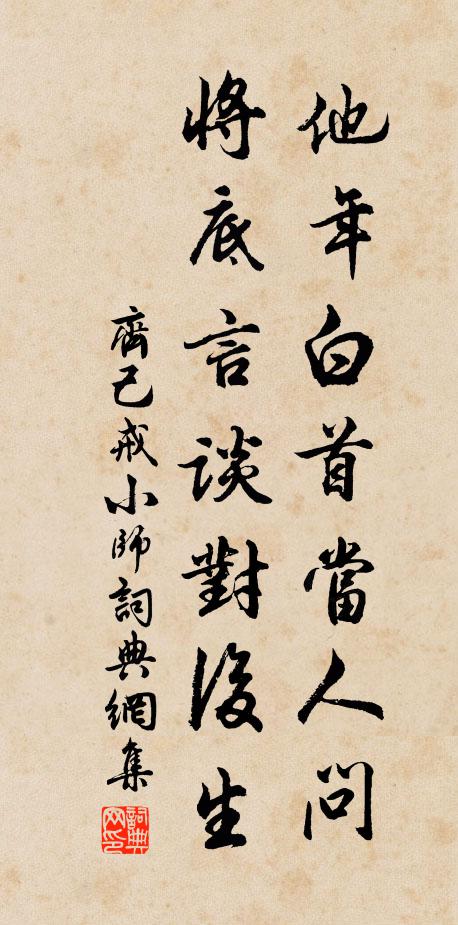 他年白首當人問
將底言談對後生
齊己戒小師詞典網集
詞典網印